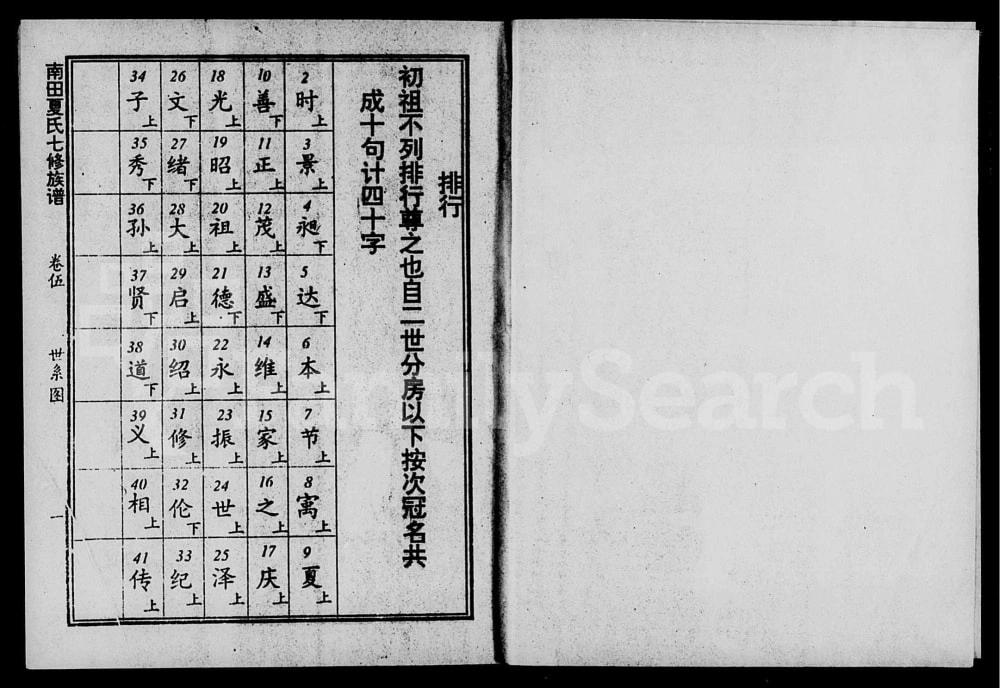 排行
初祖不列排行尊之也自二世分房以下按次冠名共
成十句计四十字
2 时 上
3 景 上
4 昶 下
5 达 下
6 本 上
7 节 上
8 寓 上
9 夏 上
10 善 下
11 正 上
12 茂 上
13 盛 下
14 维 上
15 家 上
16 之 上
17 庆 上
18 光 上
19 昭 上
20 祖 上
21 德 下
22 永 上
23 振 上
24 世 上
25 泽 上
26 文 下
27 绪 下
28 大 上
29 启 上
30 绍 上
31 修 上
32 伦 下
33 纪 上
34 子 上
35 秀 下
36 孙 上
37 贤 下
38 道 下
39 义 上
40 相 上
41 传 上
南田夏氏七修族谱
卷伍
世系图
一
FamilySearch